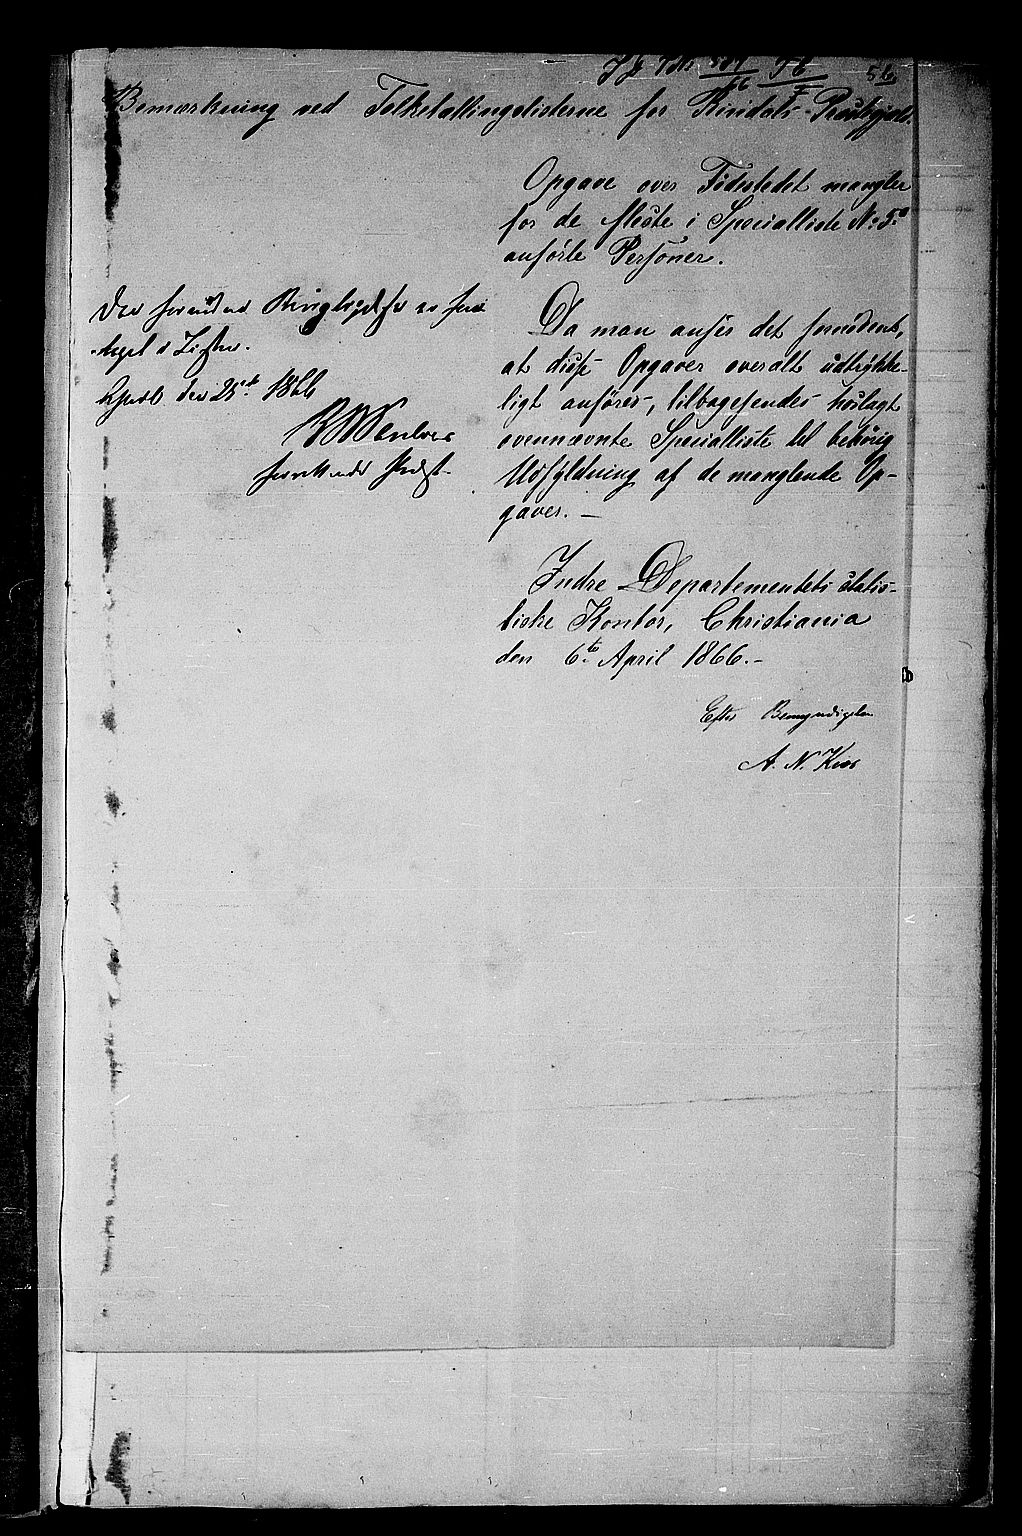 56
Bemærkning ved Folketællingslisterne for Rindals Præstegjeld.
Opgave over Fødestedet mangler
for de fleste i Specialliste No 5
anførte Personer.
Da man anser det fornødent,
at disse Opgaver overalt udtrykke-
ligt anføres, tilbagesendes hoslagt
ovennævnte Specialliste til behørig
Udfyldning af de manglende Op-
gaver. —
Indre Departementets statis-
tiske Kontor, Christiania
den 6te April 1866. -
Efter Bemyndigelse
A. N. Kiær
Den
i Listen.
den 25de 1866